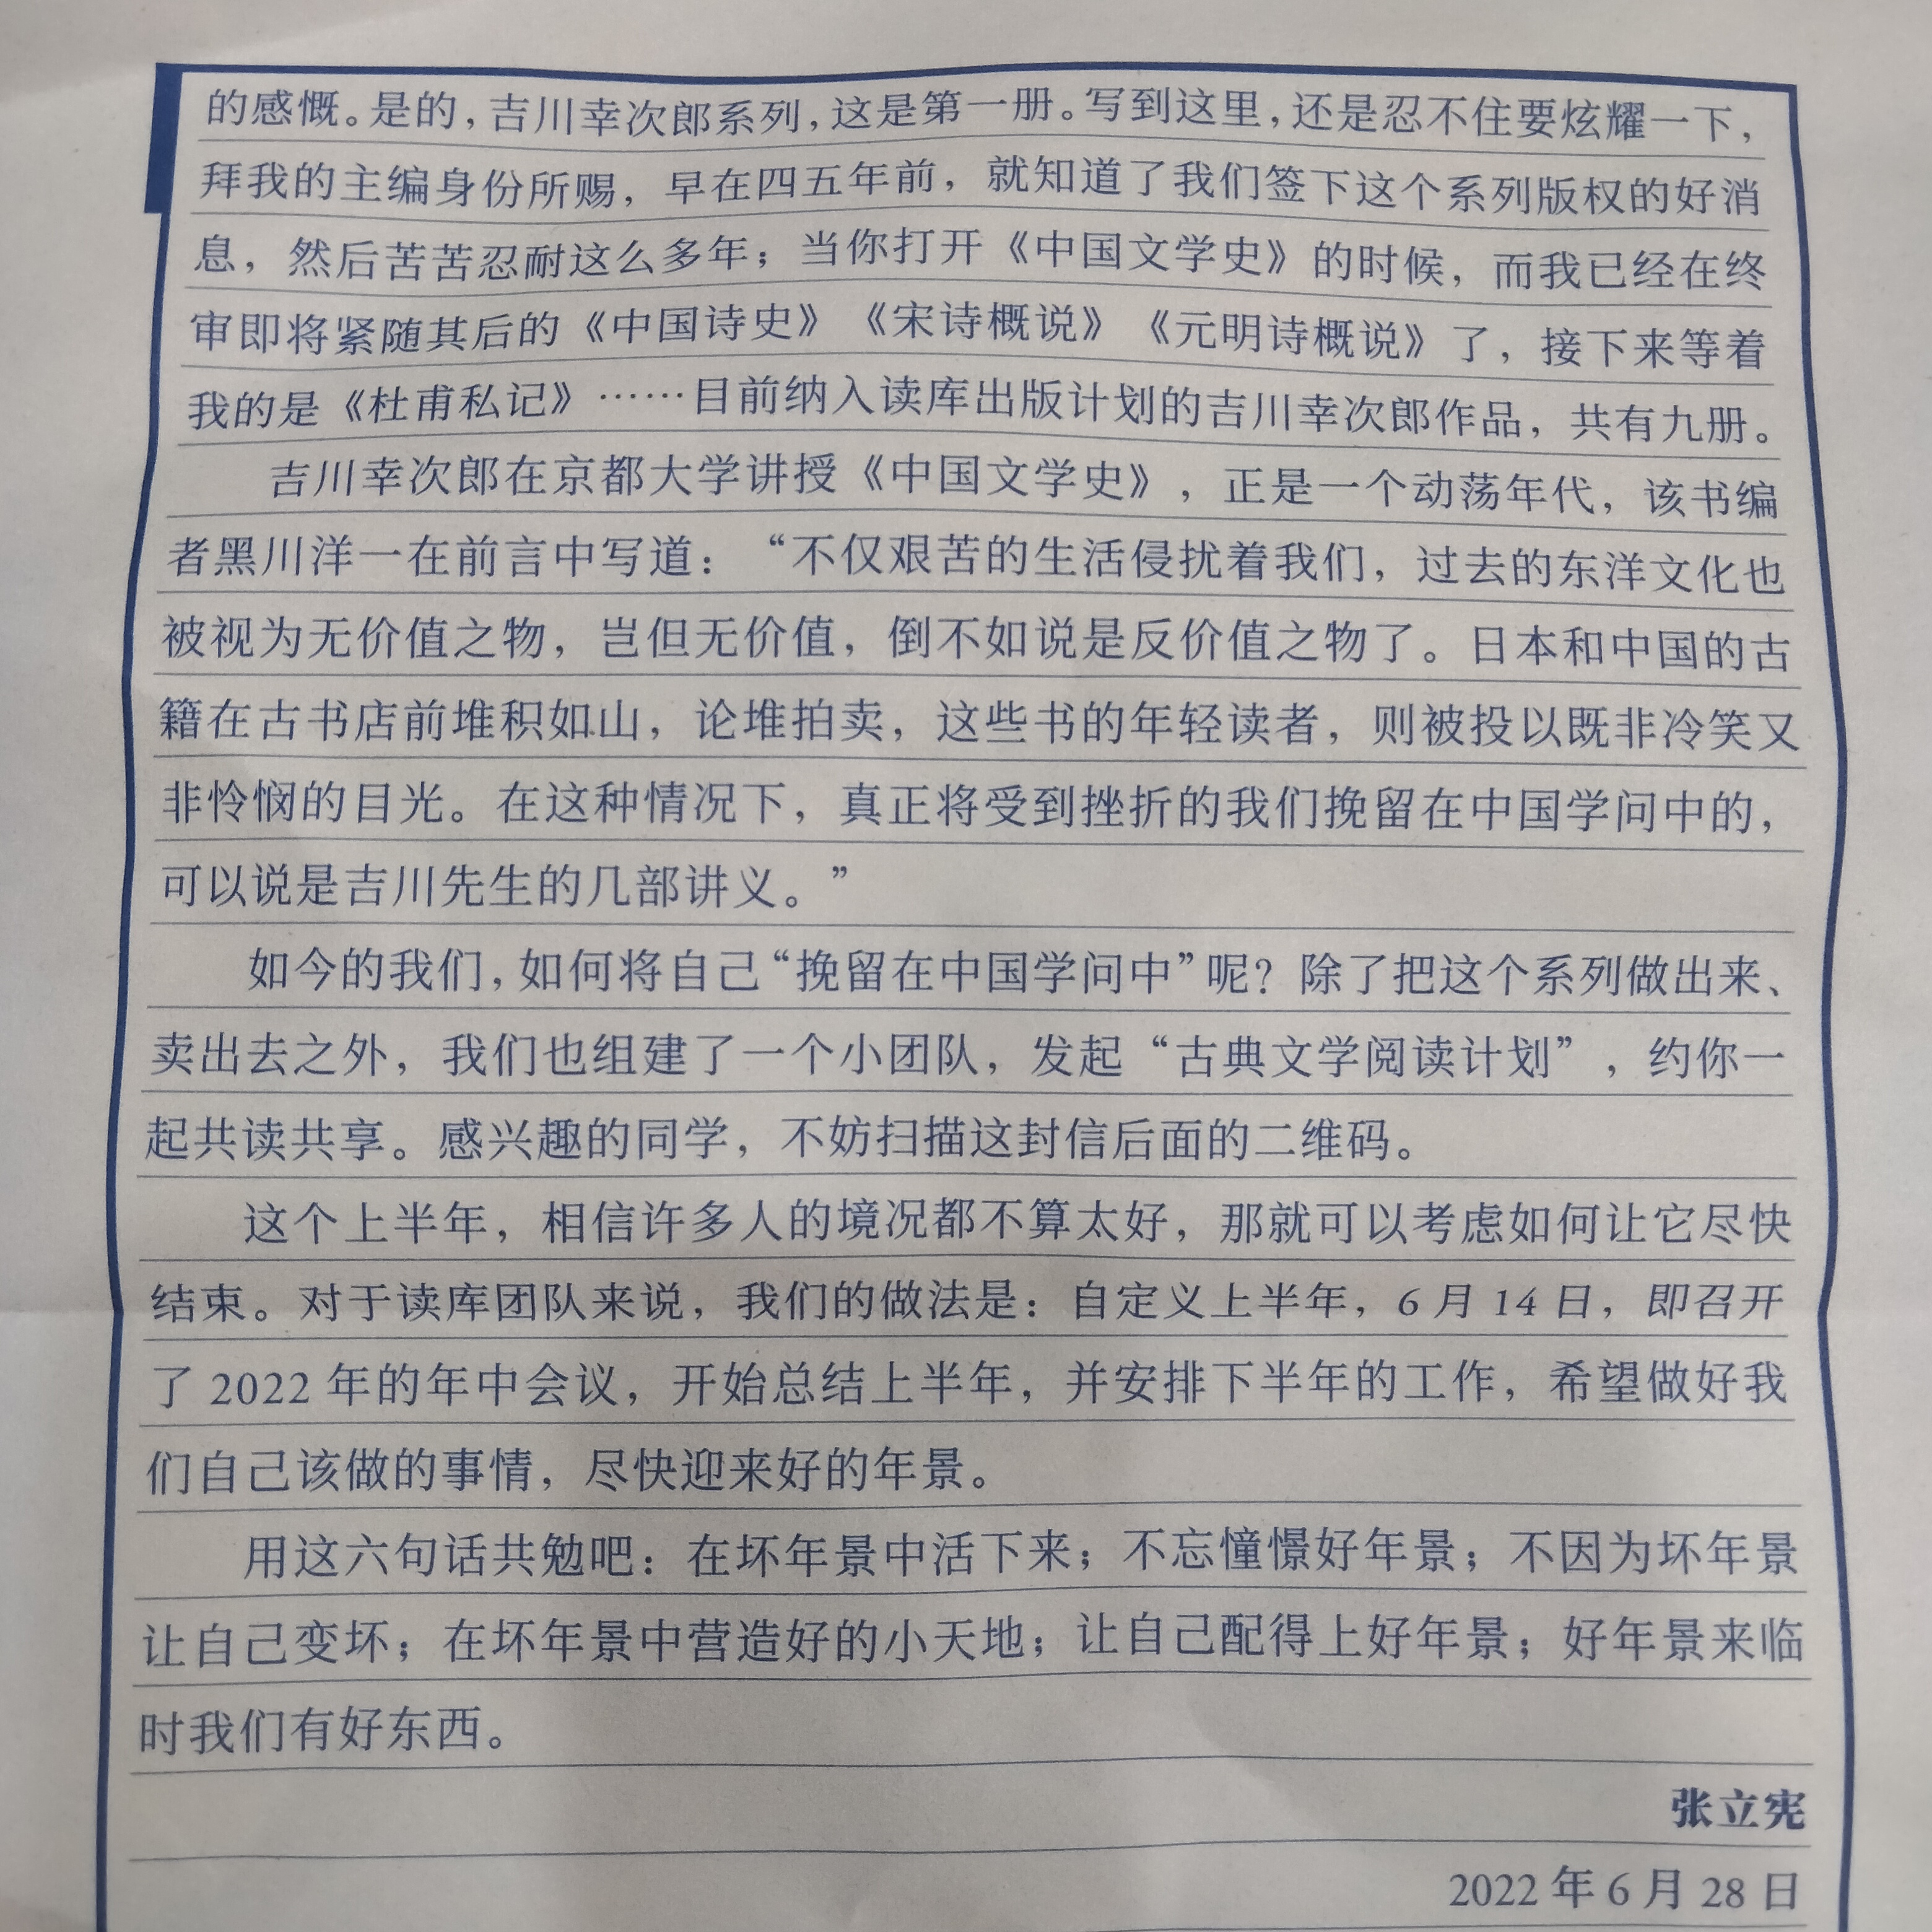 的感慨。是的，吉川幸次郎系列，这是第一册。写到这里，还是忍不住要炫耀一下，
拜我的主编身份所赐，早在四五年前，就知道了我们签下这个系列版权的好消
息，然后苦苦忍耐这么多年；当你打开《中国文学史》的时候，而我已经在终
审即将紧随其后的《中国诗史》《宋诗概说》《元明诗概说》了，接下来等着
我的是《杜甫私记》……目前纳入读库出版计划的吉川幸次郎作品，共有九册。
吉川幸次郎在京都大学讲授《中国文学史》，正是一个动荡年代，该书编
者黑川洋一在前言中写道：“不仅艰苦的生活侵扰着我们，过去的东洋文化也
被视为无价值之物，岂但无价值，倒不如说是反价值之物了。日本和中国的古
籍在古书店前堆积如山，论堆拍卖，这些书的年轻读者，则被投以既非冷笑又
非怜悯的目光。在这种情况下，真正将受到挫折的我们挽留在中国学问中的，
可以说是吉川先生的几部讲义。”
如今的我们，如何将自己“挽留在中国学问中”呢？除了把这个系列做出来、
卖出去之外，我们也组建了一个小团队，发起“古典文学阅读计划”，约你一
起共读共享。感兴趣的同学，不妨扫描这封信后面的二维码。
这个上半年，相信许多人的境况都不算太好，那就可以考虑如何让它尽快
结束。对于读库团队来说，我们的做法是：自定义上半年，6月14日，即召开
了2022年的年中会议，开始总结上半年，并安排下半年的工作，希望做好我
们自己该做的事情，尽快迎来好的年景。
用这六句话共勉吧：在坏年景中活下来；不忘憧憬好年景；不因为坏年景
让自己变坏；在坏年景中营造好的小天地；让自己配得上好年景；好年景来临
时我们有好东西。
张立宪
2022年6月28日